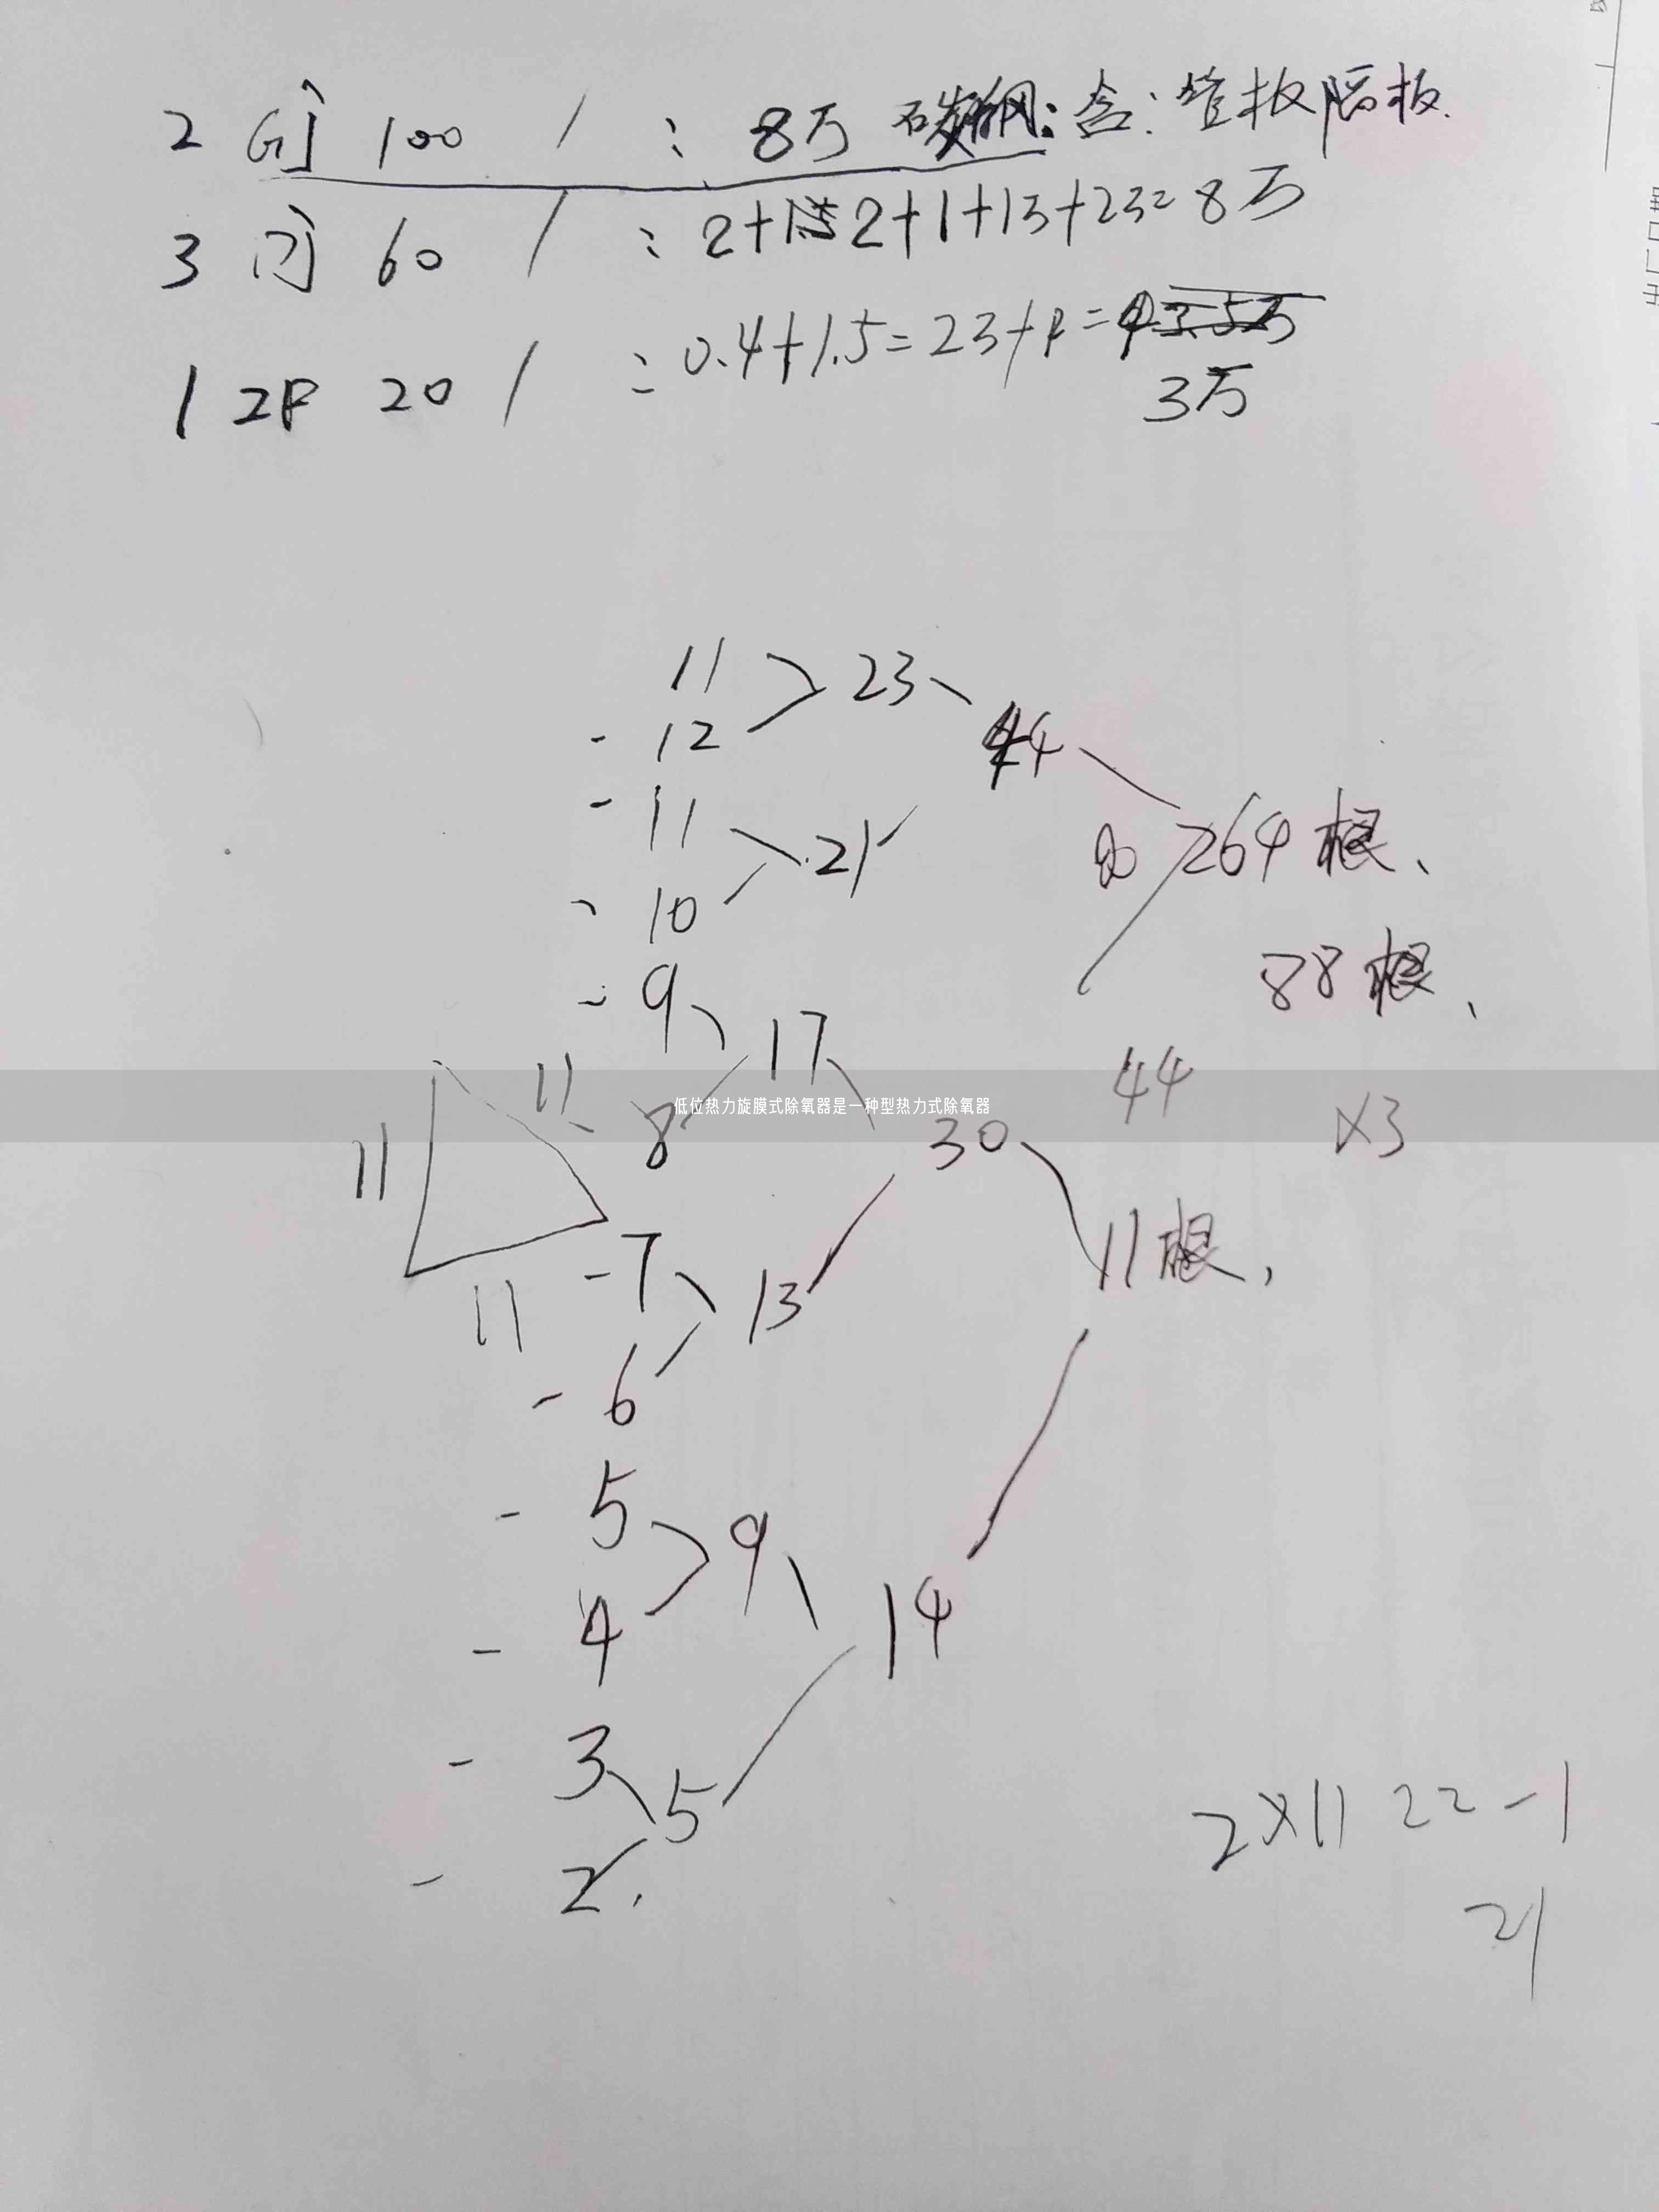 2 100 / : 8万 碳钢: 含: 管板隔板.
3 60 / : 2+1 2+1+13+23=8万
1 2P 20 / : 0.4+1.5=23+P=
3万
11 23
- 12 44
- 11 21 264根、
- 10 88根、
- 9 17 44
11 11 8 30 ×3
低位热力旋膜式除氧器是一种型热力式除氧器
11 -7 13 11根,
- 6
- 5 9
- 4 14
- 3 5 2×11 22-1
- 2. 21